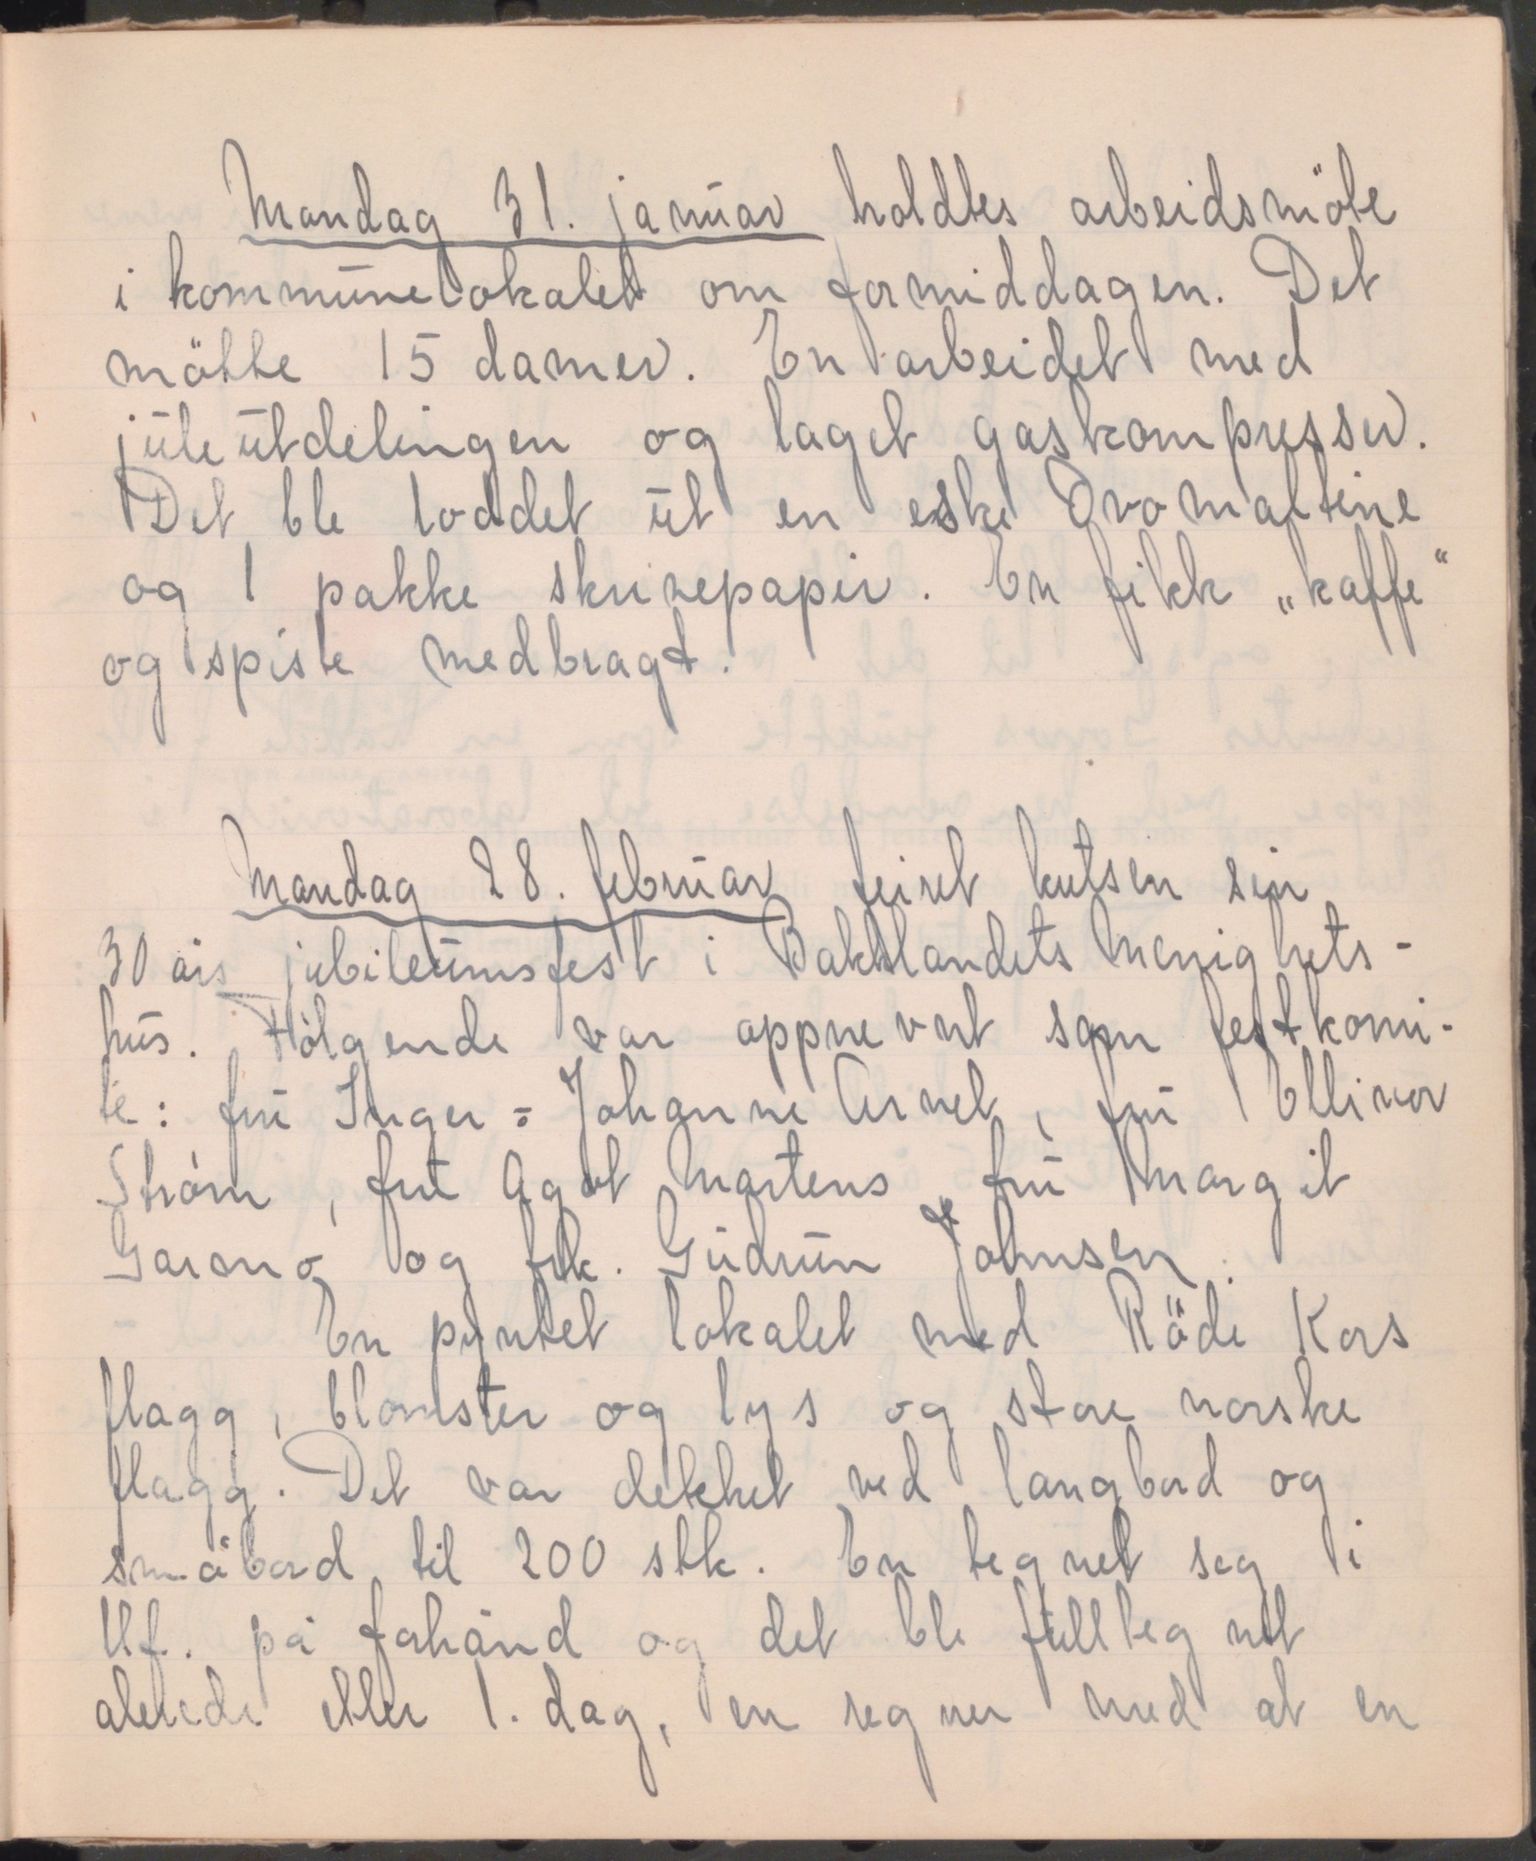 Mandag 31. januar holdtes arbeidsmöte
i kommunelokalet om formiddagen. Det
mötte 15 damer. En arbeidet med
juleutdelingen og laget gaskompresser.
Det ble loddet ut en eske Ovomaltine
og 1 pakke skrivepapir. En fikk „kaffe“
og spiste medbragt.
Mandag 28. februar feiret kretsen sin
30 års jubileumsfest i Bakklandets Menighets-
hus. Følgende var oppnevnt som festkomi-
te: fru Inger-Johanne Arnet, fru Ellinor
Strøm, fru Agot Martens, fru Margit
Garmo og frk. Gudrun Johnsen.
En pyntet lokalet med Röde Kors
flagg, blomster og lys og store norske
flagg. Det var dekket ved langbord og
småbord til 200 stk. En tegnet seg i
tlf. på forhånd og det ble fulltegnet
alerede etter 1. dag, en regner med at en